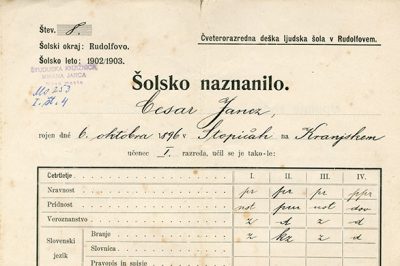 Štev. 8.
Čveterorazredna deška ljudska šola v Rudolfovem.
Šolski okraj: Rudolfovo.
Šolsko leto: 1902/1903.
ŠTUDIJSKA KNJIŽNICA
MIRANA JARCA
Ms 253
I. št. 4
Šolsko naznanilo.
Cesar Janez,
rojen dné 6. oktobra 1896 v Stopičah na Kranjskem
učenec I. razreda, učil se je tako-le:
Četrtletje I. II. III. IV.
Nravnost pr pr pr ppr
Pridnost ust pri ust dov
Veroznanstvo z d z d
Slovenski jezik
Branje z kz z d
Slovnica
Pravopis in spisje